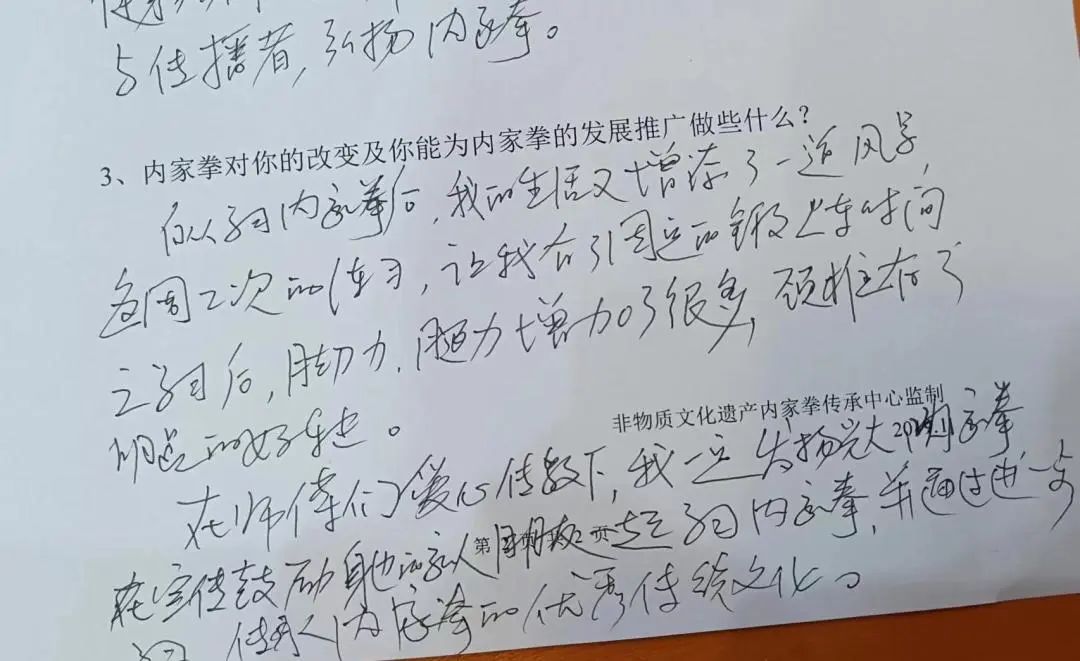 与传播者,弘扬内家拳。
3、内家拳对你的改变及你能为内家拳的发展推广做些什么?
自从习内家拳后,我的生活又增添了一道风景,
每周2次的练习,让我有了固定的锻炼时间
之习后,脚力、腿力增加了很多,颈椎有了
明显的好转。
非物质文化遗产内家拳传承中心监制
在师傅们爱心传教下,我一定发扬光大内家拳
在宣传鼓励身边的家人朋友一起习内家拳,并通过进一步
习、传承内家拳的优秀传统文化。